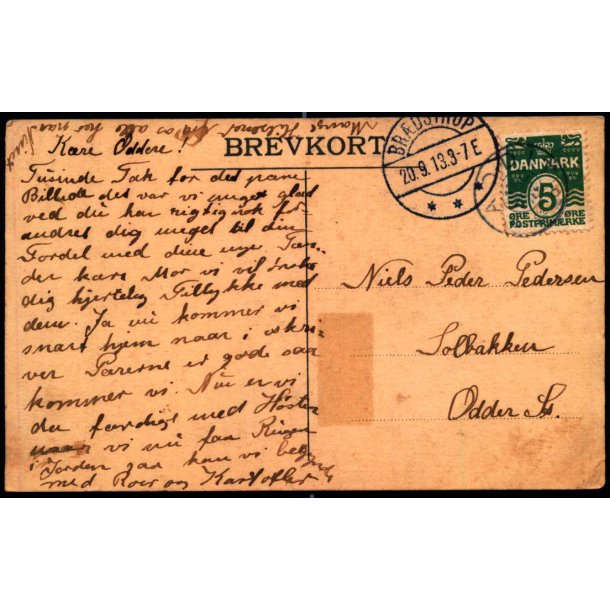 Mange Hilsener fra os alle her
BREVKORT
Kære Oddere!
Tusinde Tak for det pæne
Billede det var vi meget glad
ved du har rigtig nok for-
andret dig meget til din
Fordel med dine nye Tæn-
der kære Mor vi vil ønske
dig hjertelig Tillykke med
dem. Ja vi kommer vi
snart hjem naar i skri-
ver Pærerne er gode saa
kommer vi. Nu er vi
da færdige med Høsten
naar vi nu faa Rugen
i Jorden saa kan vi
med Roer og Kartofler
BRÆDSTRUP
20.9.13.3-7E
DANMARK
5
ØRE ØRE
POSTFRIMÆRKE
Niels Peder Pedersen
Solbakken
Odder St.